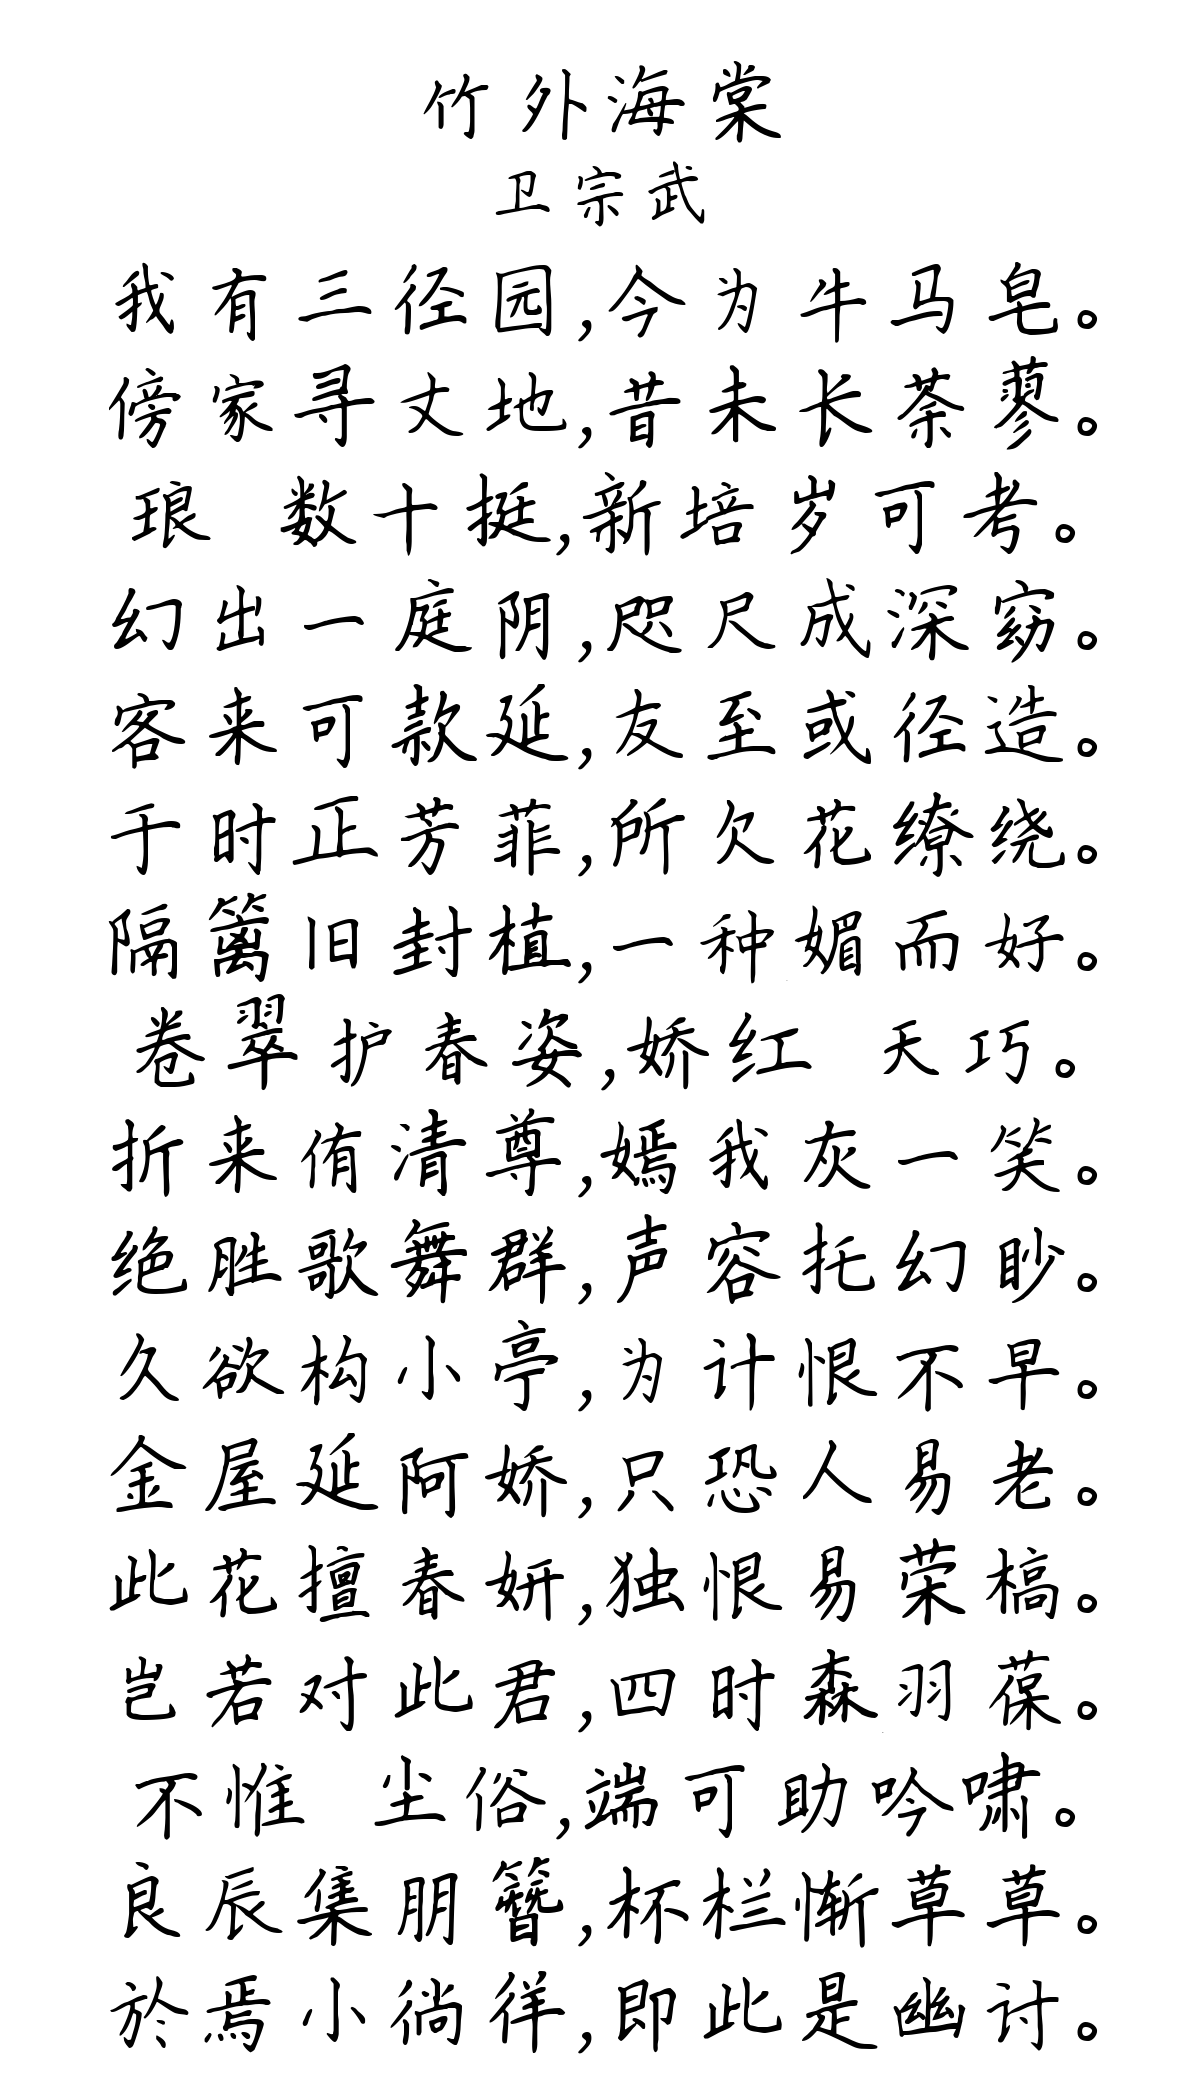 竹外海棠
卫宗武
我有三径园,今为牛马皂。
傍家寻丈地,昔未长荼蓼。
琅 数十挺,新培岁可考。
幻出一庭阴,咫尺成深窈。
客来可款延,友至或径造。
于时正芳菲,所欠花缭绕。
隔篱旧封植,一种媚而好。
卷翠护春姿,娇红 天巧。
折来侑清尊,嫣我灰一笑。
绝胜歌舞群,声容托幻眇。
久欲构小亭,为计恨不早。
金屋延阿娇,只恐人易老。
此花擅春妍,独恨易荣槁。
岂若对此君,四时森羽葆。
不惟 尘俗,端可助吟啸。
良辰集朋簪,杯栏惭草草。
於焉小徜徉,即此是幽讨。